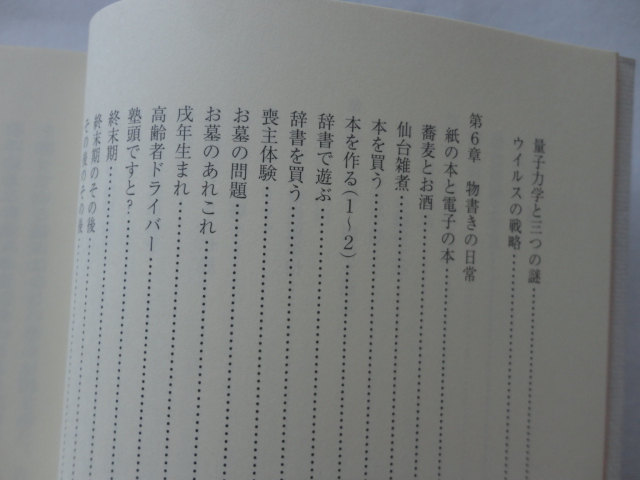 量子力学と三つの謎
ウイルスの戦略
第6章 物書きの日常
紙の本と電子の本
蕎麦とお酒
仙台雑煮
本を買う
本を作る(1〜2)
辞書で遊ぶ
辞書を買う
喪主体験
お墓の問題
お墓のあれこれ
戌年生まれ
高齢者ドライバー
塾頭ですと?
終末期
終末期のその後
その後のその後